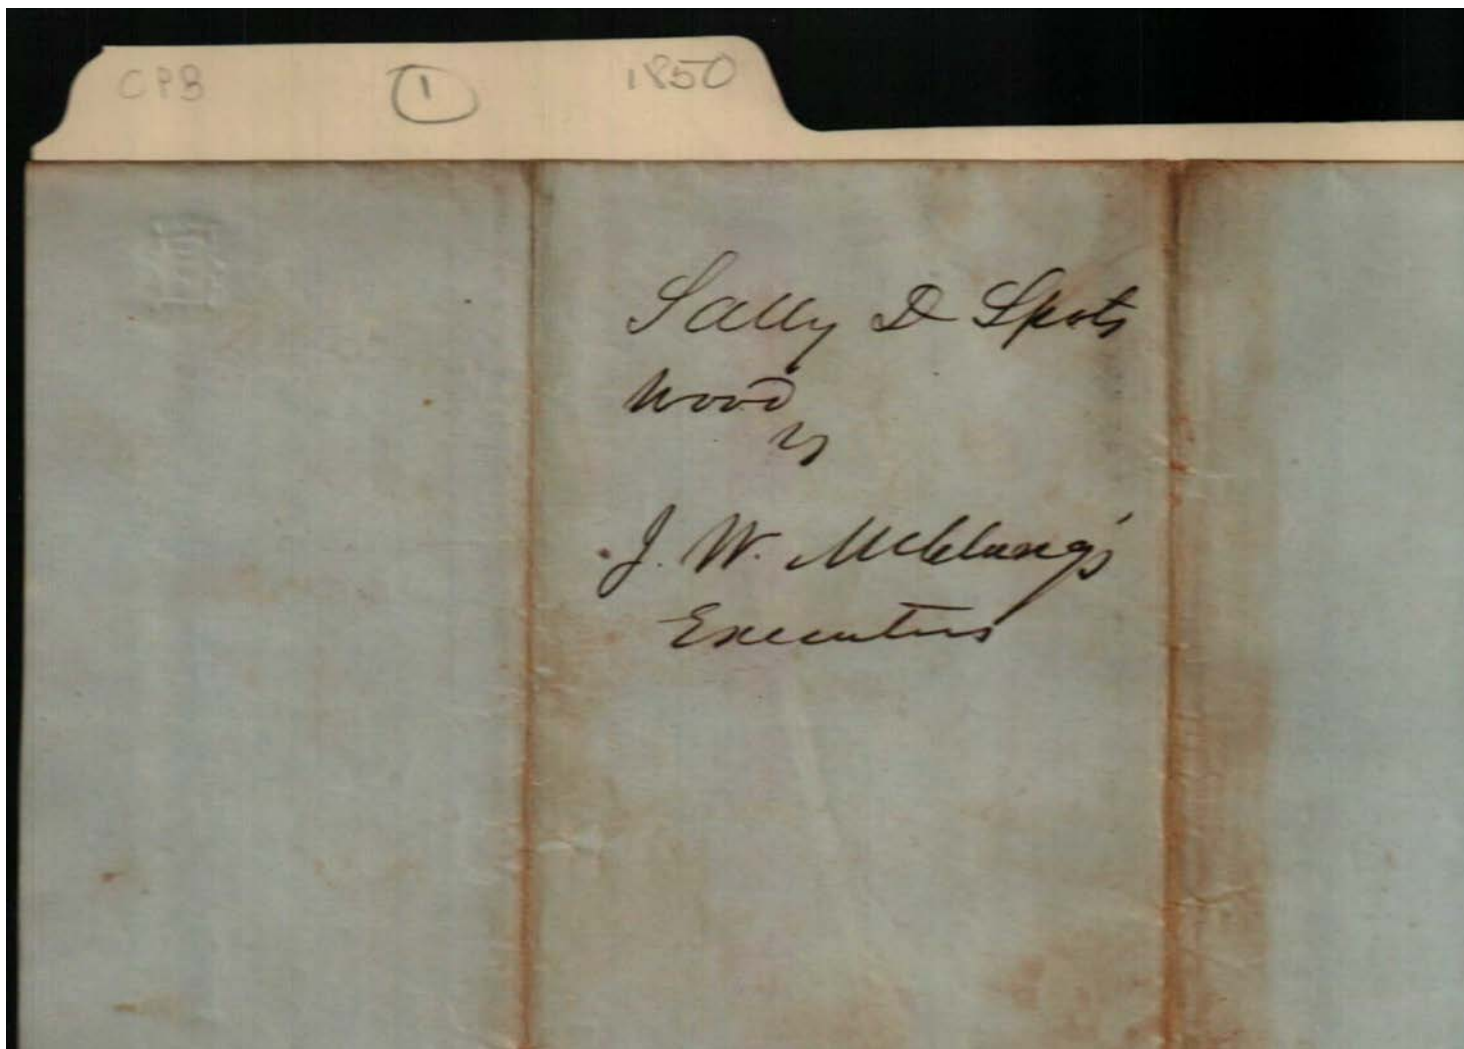 CPB 1 1850
Sally D Spots
wood
vs
J. W. McClung's
Executors